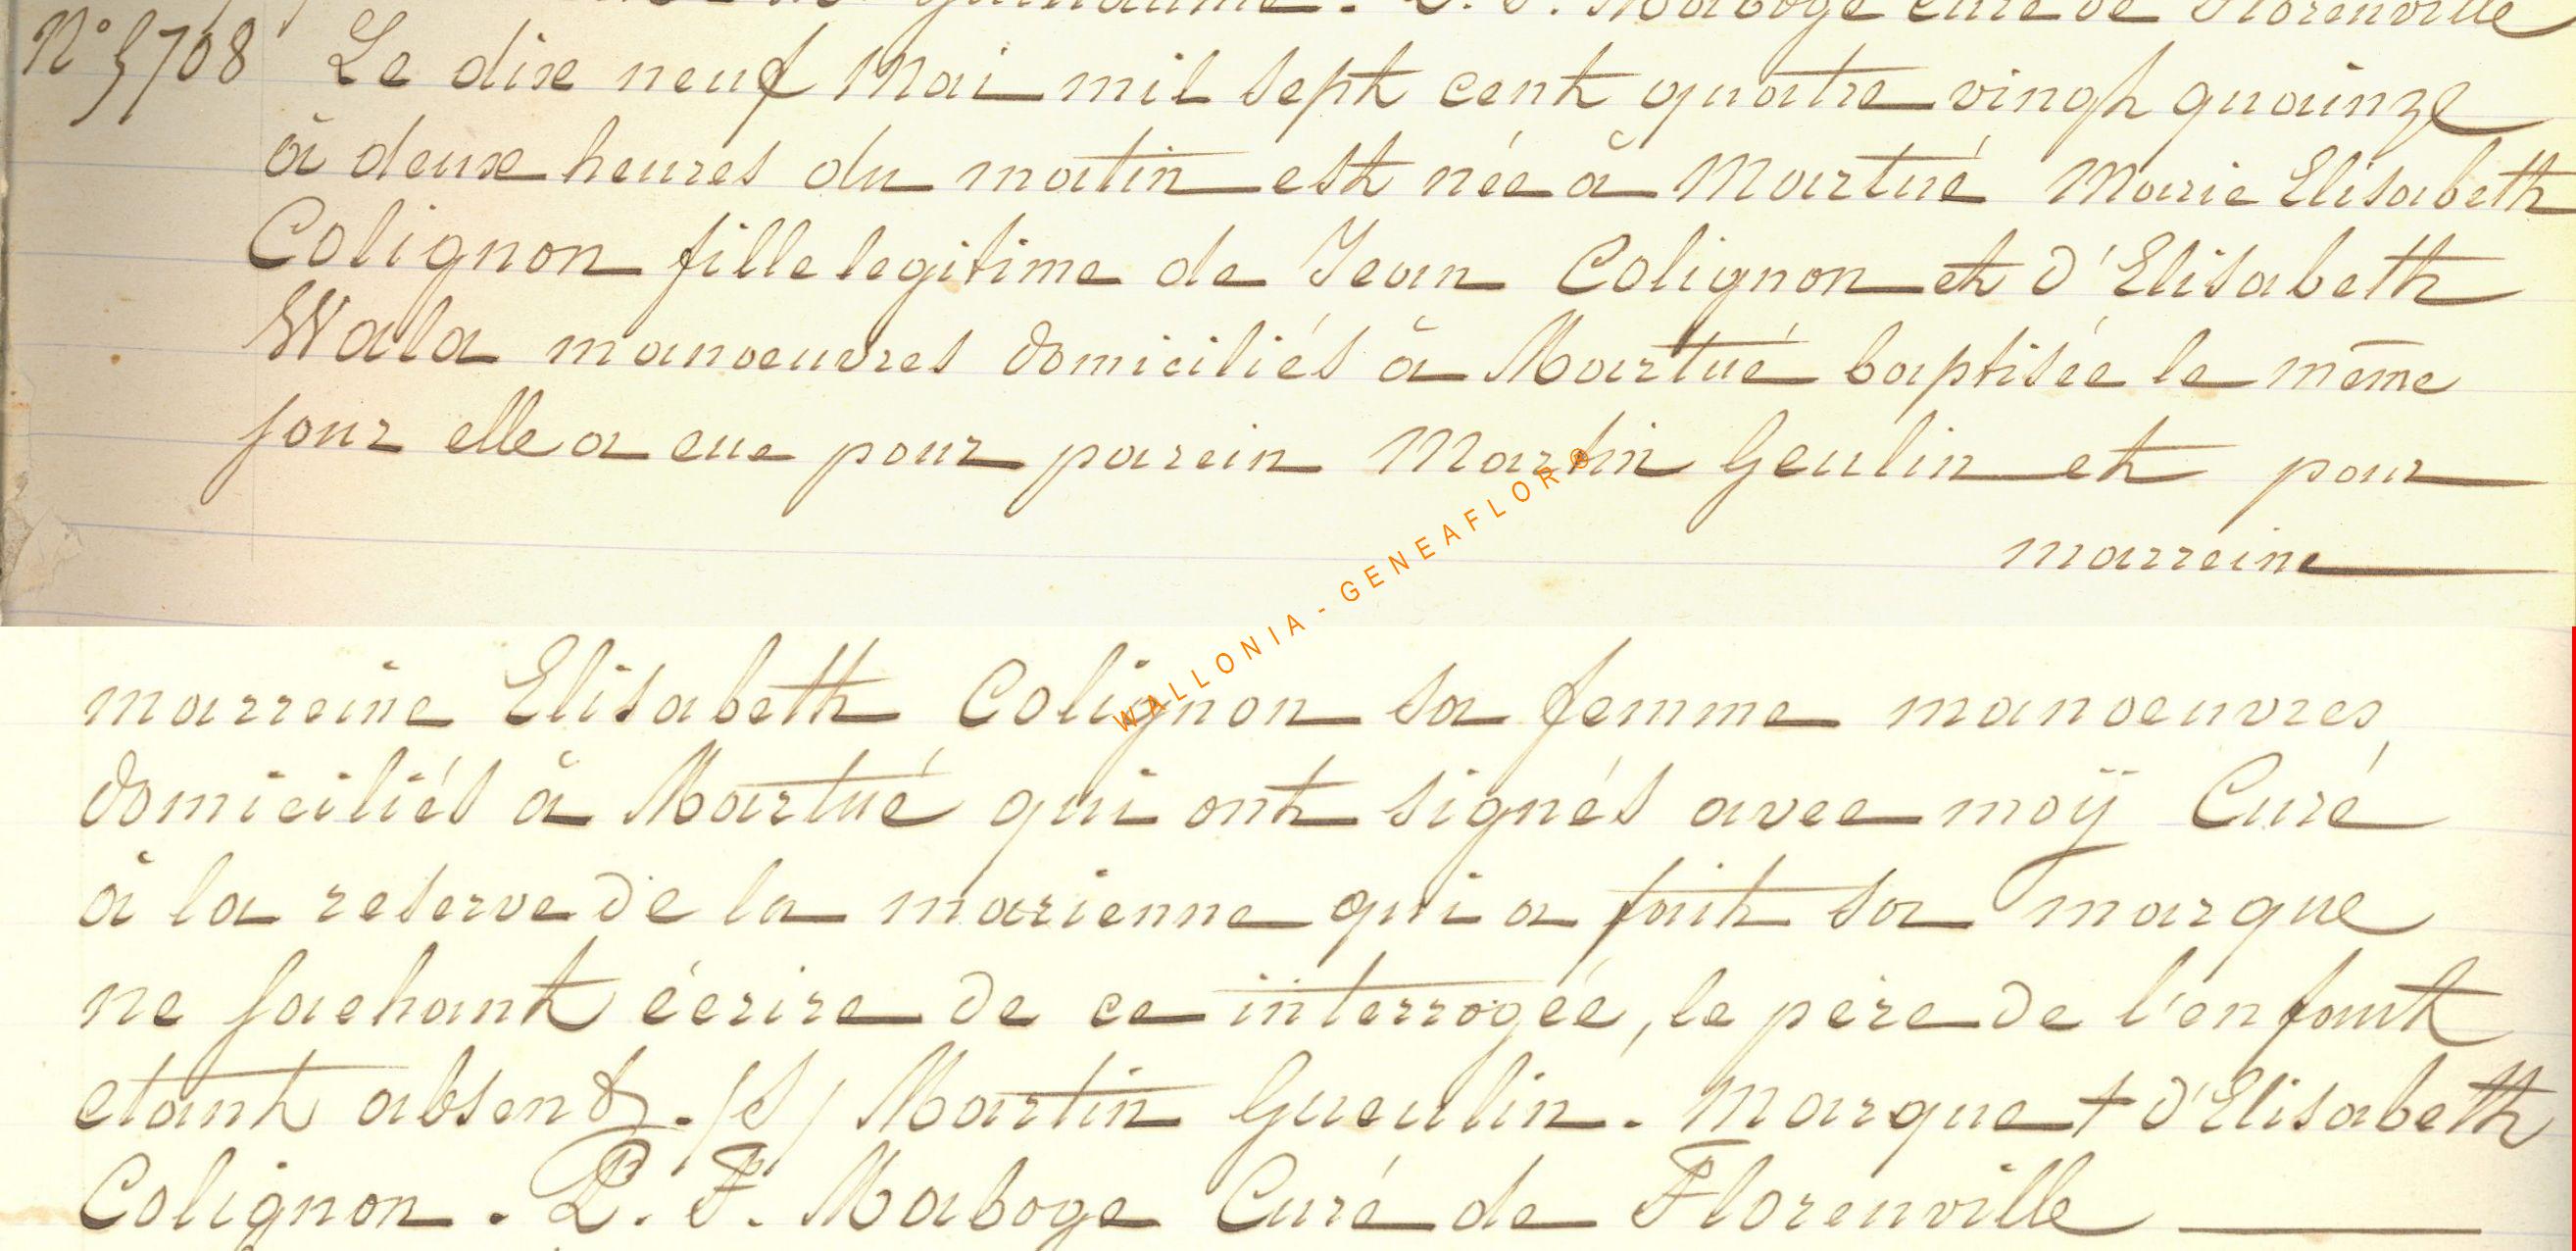 Guillaume. L. F. Maboge Curé de Florenville
N° 5708 Le dixe neuf Mai mil sept cent quatre vingt quainze
à deuxe heures du matin est née à Martué Marie Elisabeth
Colignon fille legitime de Jean Colignon et d'Elisabeth
Wala manoeuvres domiciliés à Martué baptisée le même
jour elle a eue pour parein Martin Geulin et pour
marreine
marreine Elisabeth Colignon sa femme manoeuvres,
domiciliés à Martué qui ont signés avec moÿ Curé
à la reserve de la marienne qui a fait sa marque
ne sachant écrire de ce interrogée, le père de l'enfant
etant absent. /S/ Martin Gueulin. Marque + d'Elisabeth
Colignon. L. F. Maboge Curé de Florenville
WALLONIA - GENEAFLOR®